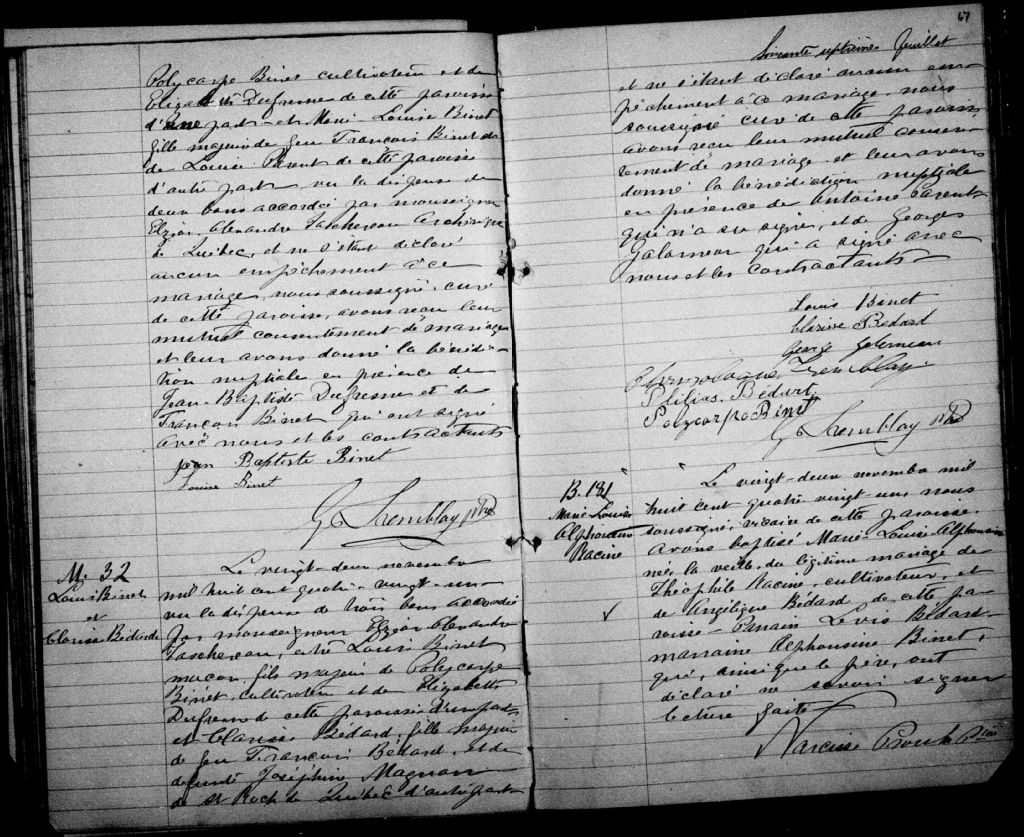 Polycarpe Binet cultivateur et de
Elizabeth Dufresne de cette paroisse
d'une part et Marie Louise Binet
fille majeure de feu François Binet et
de Louise Parent de cette paroisse
d'autre part, vu la dispense de
deux bans accordée par monseigneur
Elzéar Alexandre Taschereau Archevêque
de Québec, et ne s'étant déclaré
aucun empêchement à ce
mariage, nous soussigné, curé
de cette paroisse, avons reçu leur
mutuel consentement de mariage
et leur avons donné la bénédic-
tion nuptiale en présence de
Jean-Baptiste Dufresne et de
François Binet qui ont signé
avec nous et les contractants
Jean Baptiste Binet
Louise Binet
G. Tremblay ptre
M. 32
Louis Binet
et
Clarisse Bédard
Le vingt-deux novembre
mil huit cent quatre-vingt-un
vu la dispense de trois bans accordée
par monseigneur Elzéar Alexandre
Taschereau, entre Louis Binet
maçon, fils majeur de Polycarpe
Binet, cultivateur et de Elizabeth
Dufresne de cette paroisse d'une part
et Clarisse Bédard, fille majeure
de feu François Bédard, et de
défunte Joséphine Magnan
de St Roch de Québec d'autre part
67
Soixante septième feuillet
et ne s'étant déclaré aucun em-
pêchement à ce mariage, nous
soussigné curé de cette paroisse,
avons reçu leur mutuel consen-
tement de mariage et leur avons
donné la bénédiction nuptiale
en présence de Antoine Parent
qui n'a su signer, et de Georges
Galarneau qui a signé avec
nous et les contractants
Louis Binet
Clarisse Bedard
George Galerneau
Tremblay
Bédard
Polycarpe Binet
G. Tremblay ptre
B. 181
Marie-Louise
Alphonsine
Racine
Le vingt-deux novembre mil
huit cent quatre vingt un nous
soussigné, vicaire de cette paroisse
avons baptisé Marie-Louise-Alphonsine
née la veille, du légitime mariage de
Théophile Racine, cultivateur, et
de Angélique Bédard de cette pa-
roisse - Parrain Levis Bédard
marraine Alphonsine Binet,
qui, ainsi que le père, ont
déclaré ne savoir signer
lecture faite
Narcisse Proulx Ptre